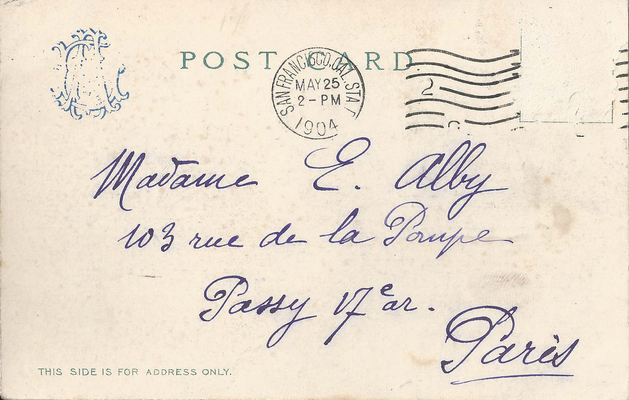 POST CARD
SAN FRANCISCO, CAL. STA.
MAY 25
2-PM
1904
2
Madame E. Alby
103 rue de la Pompe
Passy 17e ar.
Paris
THIS SIDE IS FOR ADDRESS ONLY.